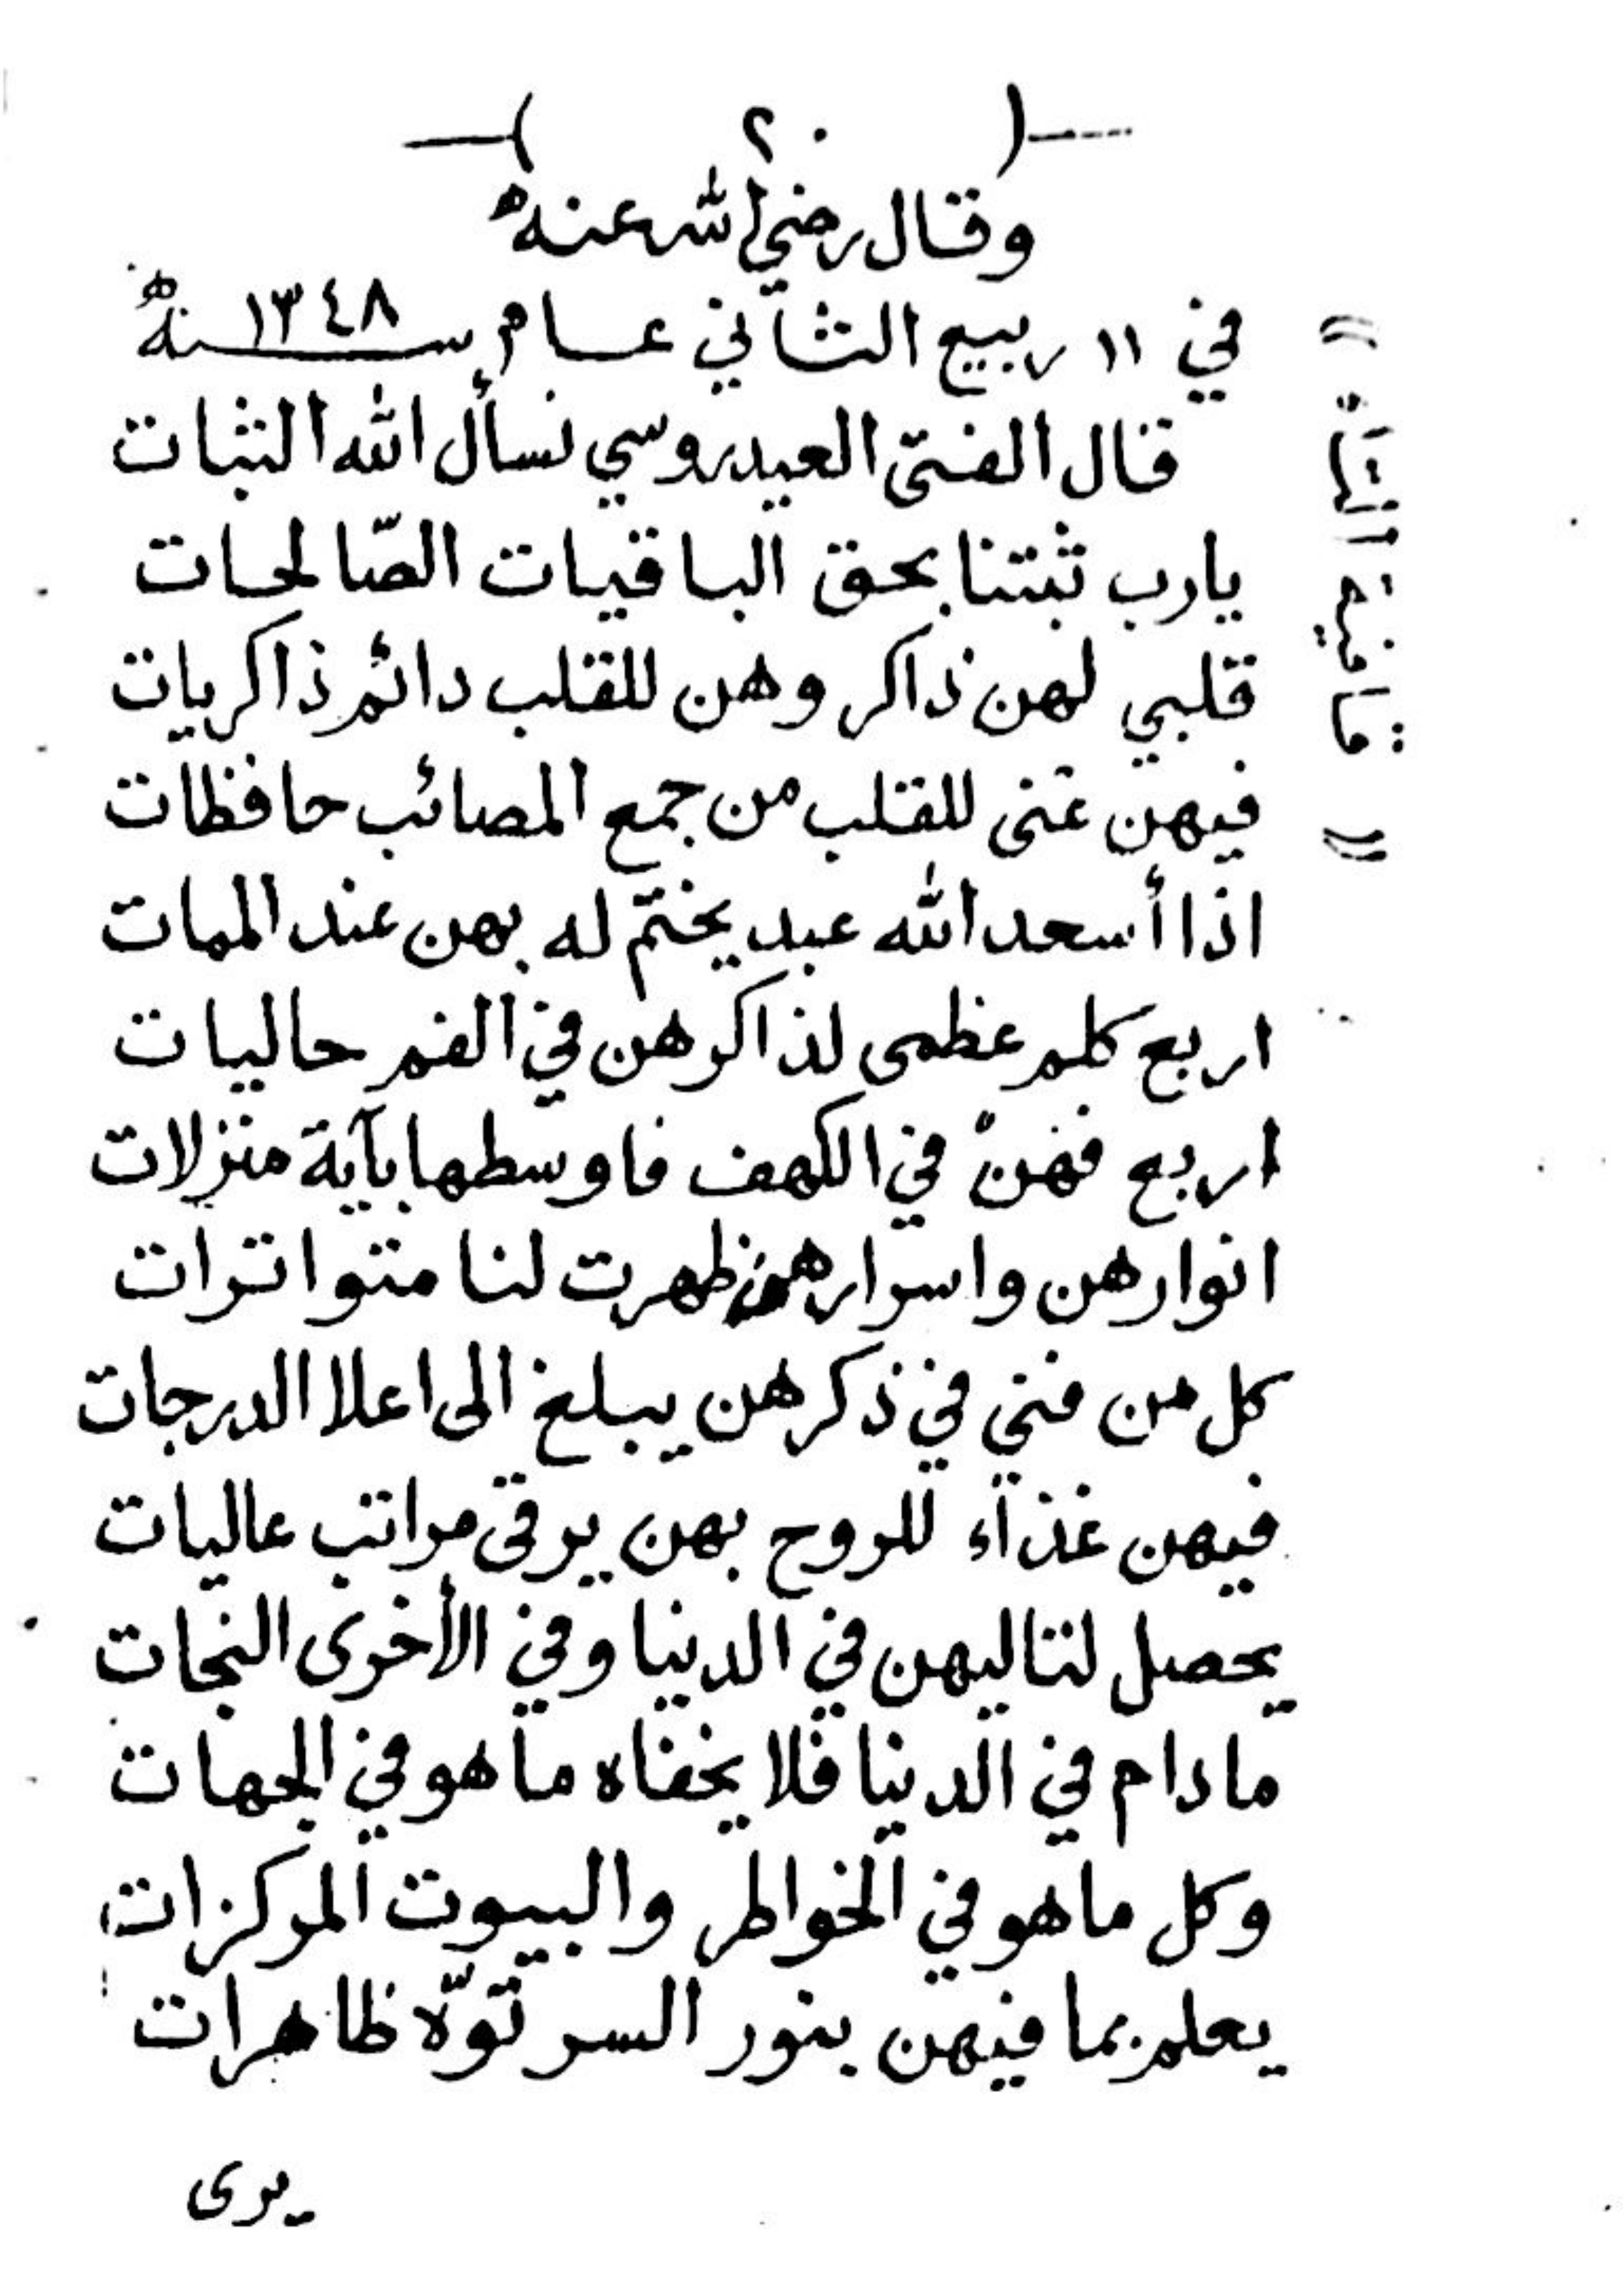 ( ٢٠ )
وقال رضي الله عنه
في ١١ ربيع الثاني عام سنة ١٣٤٨
قافية التاء
قال الفتى العيدروسي نسأل الله الثبات
يارب ثبتنا بحق الباقيات الصّالحات
قلبي لهن ذاكر وهن للقلب دائم ذاكريات
فيهن غنى للقلب من جمع المصائب حافظات
اذا أسعد الله عبد يختم له بهن عند الممات
اربع كلم عظمى لذاكرهن في الفم حاليات
اربع فهنّ في الكهف فاوسطها بآية منزلات
انوارهن واسرارهن ظهرت لنا متواترات
كل من فني في ذكرهن يبلغ الى اعلا الدرجات
فيهن غذاء للروح بهن يرقى مراتب عاليات
يحصل لتاليهن في الدنيا وفي الأخرى النجات
مادام في الدنيا فلا يخفاه ما هو في الجهات
وكل ما هو في الخواطر والبيوت المركزات
يعلم بما فيهن بنور السر توّه ظاهرات
يرى